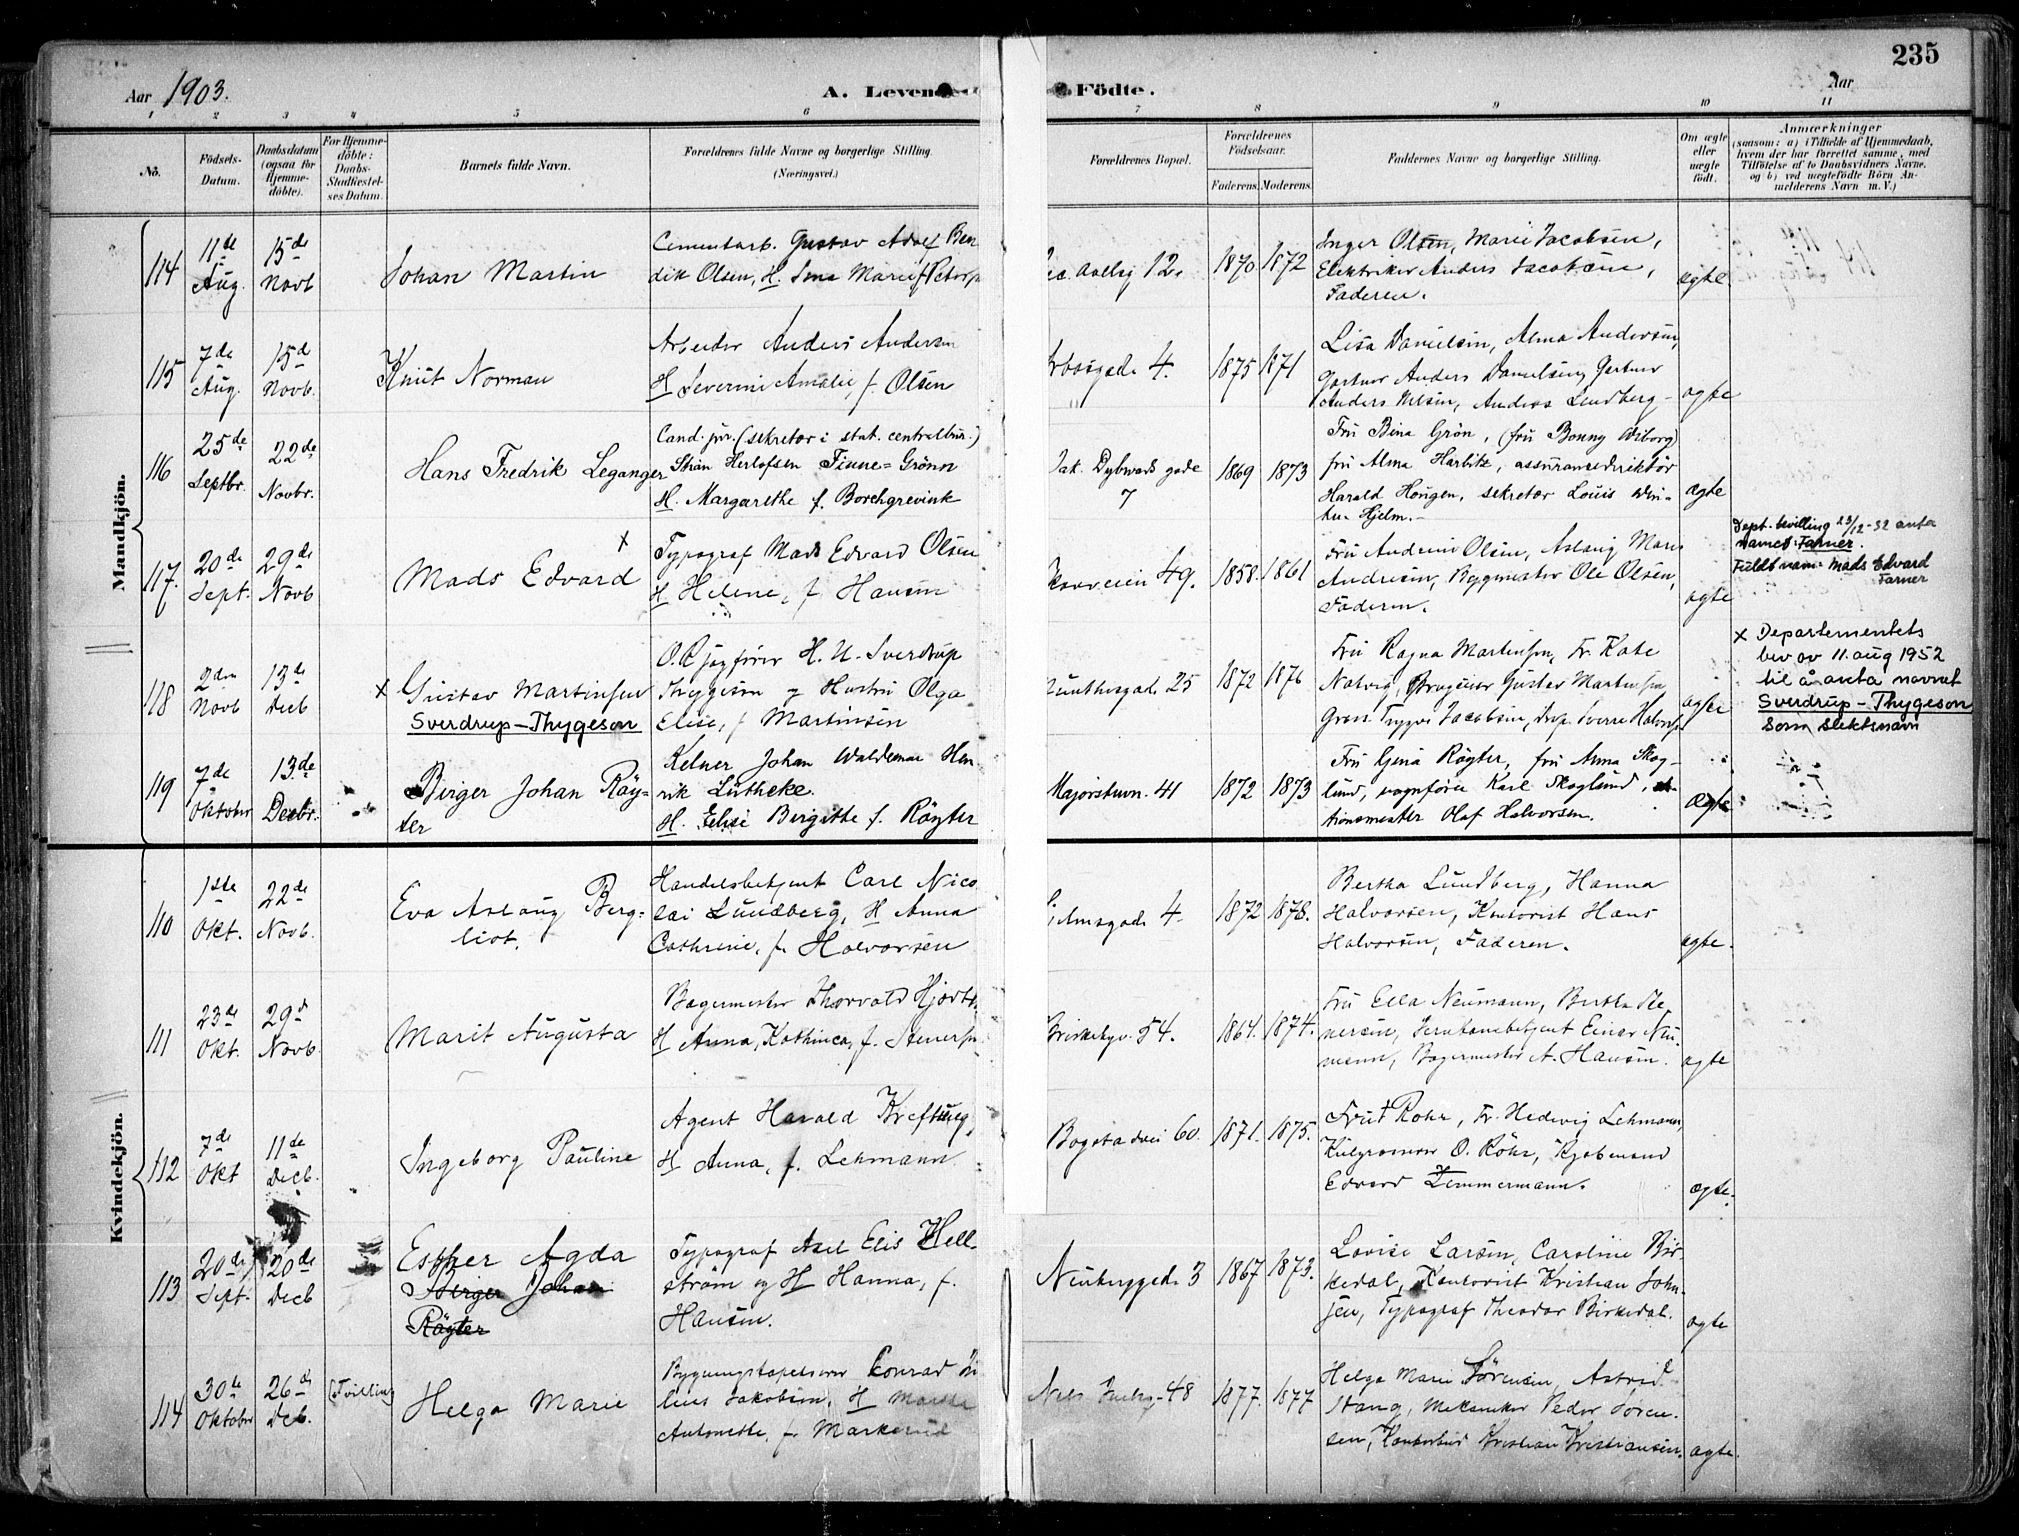 235
Aar 1903.
A. Levende
Födte.
Aar
1 2 3 4 5 6 7 8 9 10 11
No.
Födsels-Datum.
Daabsdatum (ogsaa for Hjemme-döbte).
For Hjemme-döbte: Daabs-Stadfæstel-ses Datum.
Barnets fulde Navn.
Forældrenes fulde Navne og borgerlige Stilling.
(Næringsvei.)
Forældrenes Bopæl.
Forældrenes Födselsaar.
Faderens. Moderens.
Faddernes Navne og borgerlige Stilling.
Om ægte eller uægte født.
Anmærkninger
(saasom: a) i Tilfælde af Hjemmedaab,
hvem der har forrettet samme, med
Tilföielse af to Daabsvidners Navne.
og b) ved uægtefödte Börn An-
melderens Navn m. V.)
Mandkjön.
114
11te Aug.
15de Novb
Johan Martin
Cementarb. Gustav Adolf Ben
dik Olsen, H. Marie f.
12.
1870 1872
Inger Olsen, Marie Jacobsen,
Elektriker Anders Jacobsen,
Faderen.
ægte
115
7de Aug.
15d Novb.
Knut Norman
Arbeider Anders Andersen
H Severine Amalie, f. Olsen
4.
1875 1871
Lisa Danielsen, Alma Andersen,
Gartner Anders Danielsen, Gartner
Anders Nilsen, Anders Lundberg
ægte
116
25de Septbr.
22de Novbr.
Hans Fredrik Leganger
Cand. jur. (sekretær i stat. centralbur.)
Stian Herlofsen Finne=Grönn
H. Margarethe f. Borchgrevink
Jak. Dybwads gade
7
1869 1873
Fru Bina Grön, (fru Bonny Wiborg)
fru Alma Harbitz, assurancedirektör
Harald Hougen, sekretær Louis Win-
ter-Hjelm.
Ægte
117.
20de Sept.
29de Novb
Mads Edvard x
Typograf Mads Edvard Olsen
H Helene, f Hansen
49.
1858. 1861
Fru Andrine Olsen, Aslaug Marie
Andresen, Bygmester Ole Olsen,
Faderen.
ægte
Dept. bevilling 23/12-32 anta
navnet Farner.
Fuldt navn: Mads Edvard
Farner
118
2den Novb
13de Decb
x Gustav Martinsen
Sverdrup-Thygeson
O.R Sagförer H. U. Sverdrup
Thygeson og Hustru Olga
Elise, f Martinsen
25
1872 1876
Fru Ragna Martinsen, Fr. Kate
Natvig, Gustav Martinsen
Trygve Jacobsen, Sverre
ægte
x Departementets
bev av 11. aug 1952
til å anta navnet
Sverdrup-Thygeson
som slektsnavn
119
7de Oktober
13.de Decbr.
Birger Johan Röy-
ter
Kelner Johan Waldemar Hen
rik Lütheke.
H. Elise Birgitte f. Röyter
Majorstuvn. 41
1872 1873
Fru Gina Röyter, fru Anna Skog-
lund, vognförer Karl Skoglund, sta-
tionsmester Olaf Halvorsen.
Ægte
Kvindekjön.
110
1ste Okt.
22de Novb.
Eva Aslaug Berg-
liot.
Handelsbetjent Carl Nico
lai Lundberg, H Anna
Cathrine, f. Halvorsen
4
1872 1878.
Bertha Lundberg, Hanna
Halvorsen, Kontorist Hans
Halvorsen, Faderen.
ægte.
111
23de Okt.
29d Novb.
Marit Augusta
Bagermester Thorvald Hjort
H Anna, Kathinca, f. Stenersen
Briskebyv. 54.
1864. 1874.
Fru Ella Neumann, Bertha Ste
nersen, Jernbanebetjent Einar Neu-
mann, Bagermester A. Hansen.
ægte
112
7de Okt
11de Decb.
Ingeborg Pauline
Agent Harald Krefting
H Anna, f. Lehmann.
Bogstadvei 60.
1871. 1875.
Fru Rohr, Fr. Hedevig Lehmann,
O. Röhr, Kjøbmand
Edvard Zimmermann.
ægte.
113
20de Sept.
20de Decb
Esther Agda
Birger Johan
Röyter
Typograf Axel Elis Hell-
ström og H Hanna, f.
Hansen.
Neuberggad. 3
1867 1873.
Lovise Larsen, Caroline Bir-
kedal, Kontorist Kristian John-
sen, Typograf Theodor Birkedal.
ægte
114
30te Oktober
26d Deb.
(Tvilling
Helga Marie
Bygningstapetserer Conrad
Jakobsen, H
Antonette, f. Markerud
Nels Juelsg. 48
1877. 1877
Helga Marie Sörensen, Astrid
Stang, Mekaniker Peder Sören-
sen, Kontorbud Kristian Kristiansen.
ægte.